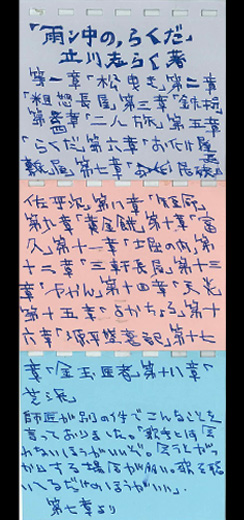 「雨ン中の、らくだ」
立川志らく著
第一章「松曳き」第二章
「粗忽長屋」第三章「鉄拐」
第四章「二人旅」第五章
「らくだ」第六章「お化け長
屋」第七章「居残り
佐平次」第八章「短命」
第九章「黄金餅」第十章「富
久」第十一章「堀の内」第
十二章「三軒長屋」第十三
章「やかん」第十四章「天災」
第十五章「よかちょろ」第十
六章「源平盛衰記」第十七
章「金玉医者」第十八章「
芝浜」
師匠が別の件でこんなことを
言っておりました。「歌手とは
れないほうがいいぞ。
する場合が多い。歌を聴
いてるだけのほうがいい」
第七章より